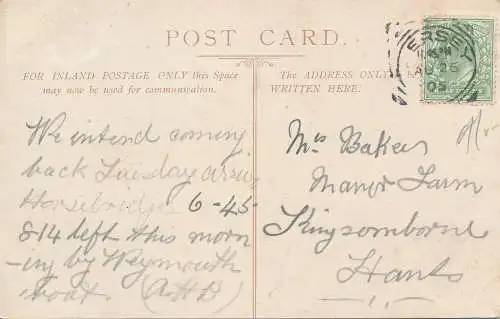 POST CARD.
FOR INLAND POSTAGE ONLY this Space
may now be used for communication.
The ADDRESS ONLY
WRITTEN HERE.
ERSEY
AU 26
05
We intend coming
back Tuesday arriv
Horsebridge 6-45
814 left this morn
-ing by Weymouth
boat (AHB)
Mrs Baker
Manor Farm
Kingsomborne
Hants